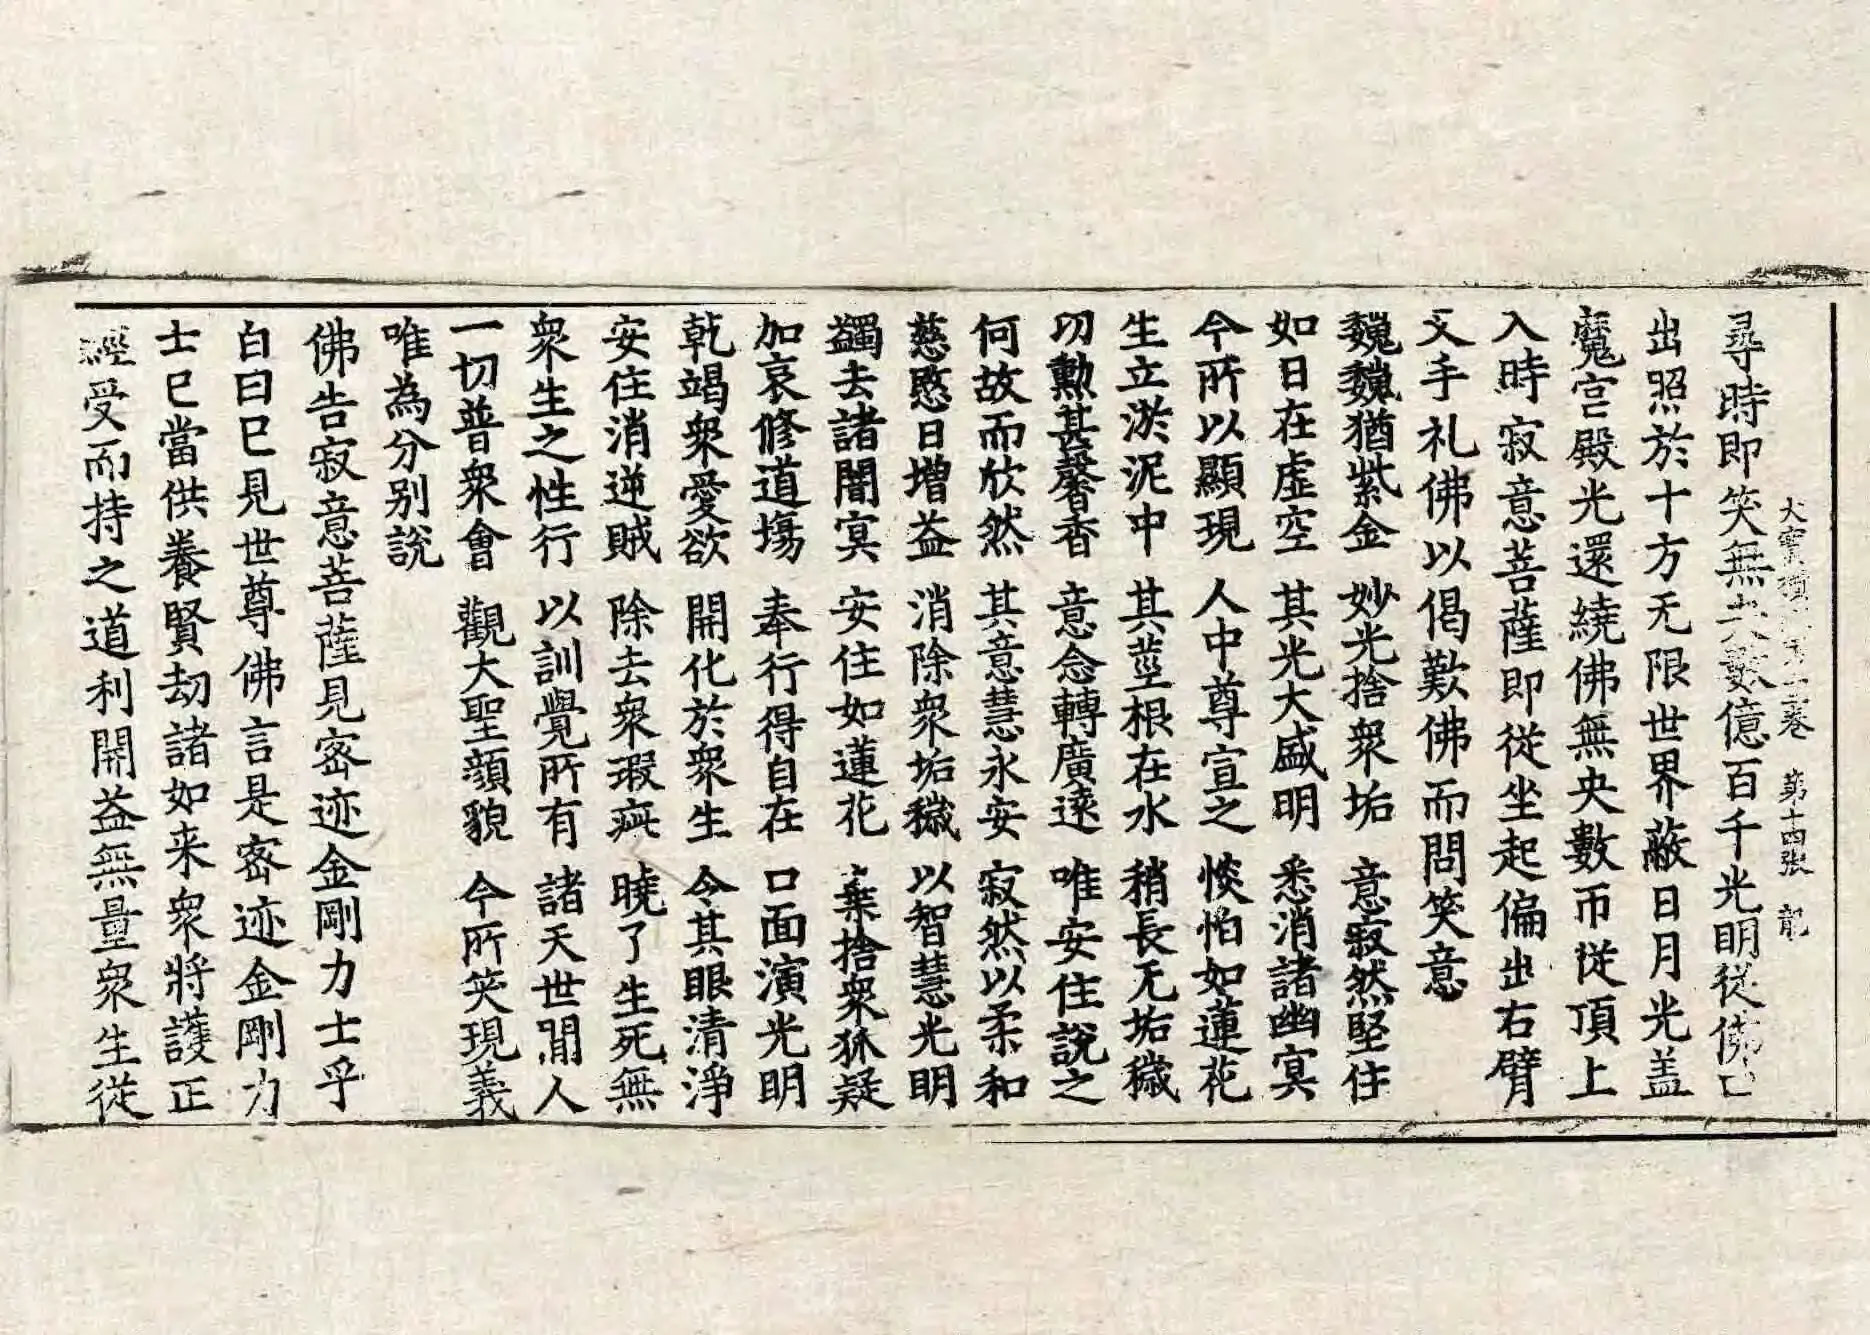 大寶積 卷 第十四張 龍
尋時即笑無央數億百千光明從佛口
出照於十方无限世界蔽日月光盖
魔宫殿光還繞佛無央數帀從頂上
入時寂意菩薩即從坐起偏出右臂
叉手礼佛以偈歎佛而問笑意
巍巍猶紫金 妙光捨衆垢 意寂然堅住
如日在虛空 其光大盛明 悉消諸幽冥
今所以顯現 人中尊宣之 惔怕如蓮花
生立淤泥中 其莖根在水 稍長无垢穢
功勲甚馨香 意念轉廣遠 唯安住說之
何故而欣然 其意慧永安 寂然以柔和
慈愍日增益 消除衆垢穢 以智慧光明
蠲去諸闇冥 安住如蓮花 棄捨衆狐疑
加哀修道塲 奉行得自在 口面演光明
乾竭衆愛欲 開化於衆生 令其眼清淨
安住消逆賊 除去衆瑕疵 曉了生死無
衆生之性行 以訓覺所有 諸天世間人
一切普衆會 觀大聖顔貌 今所笑現義
唯為分別說
佛告寂意菩薩見密迹金剛力士乎
白曰已見世尊佛言是密迹金剛力
士已當供養賢劫諸如来衆將護正
經受而持之道利開益無量衆生從